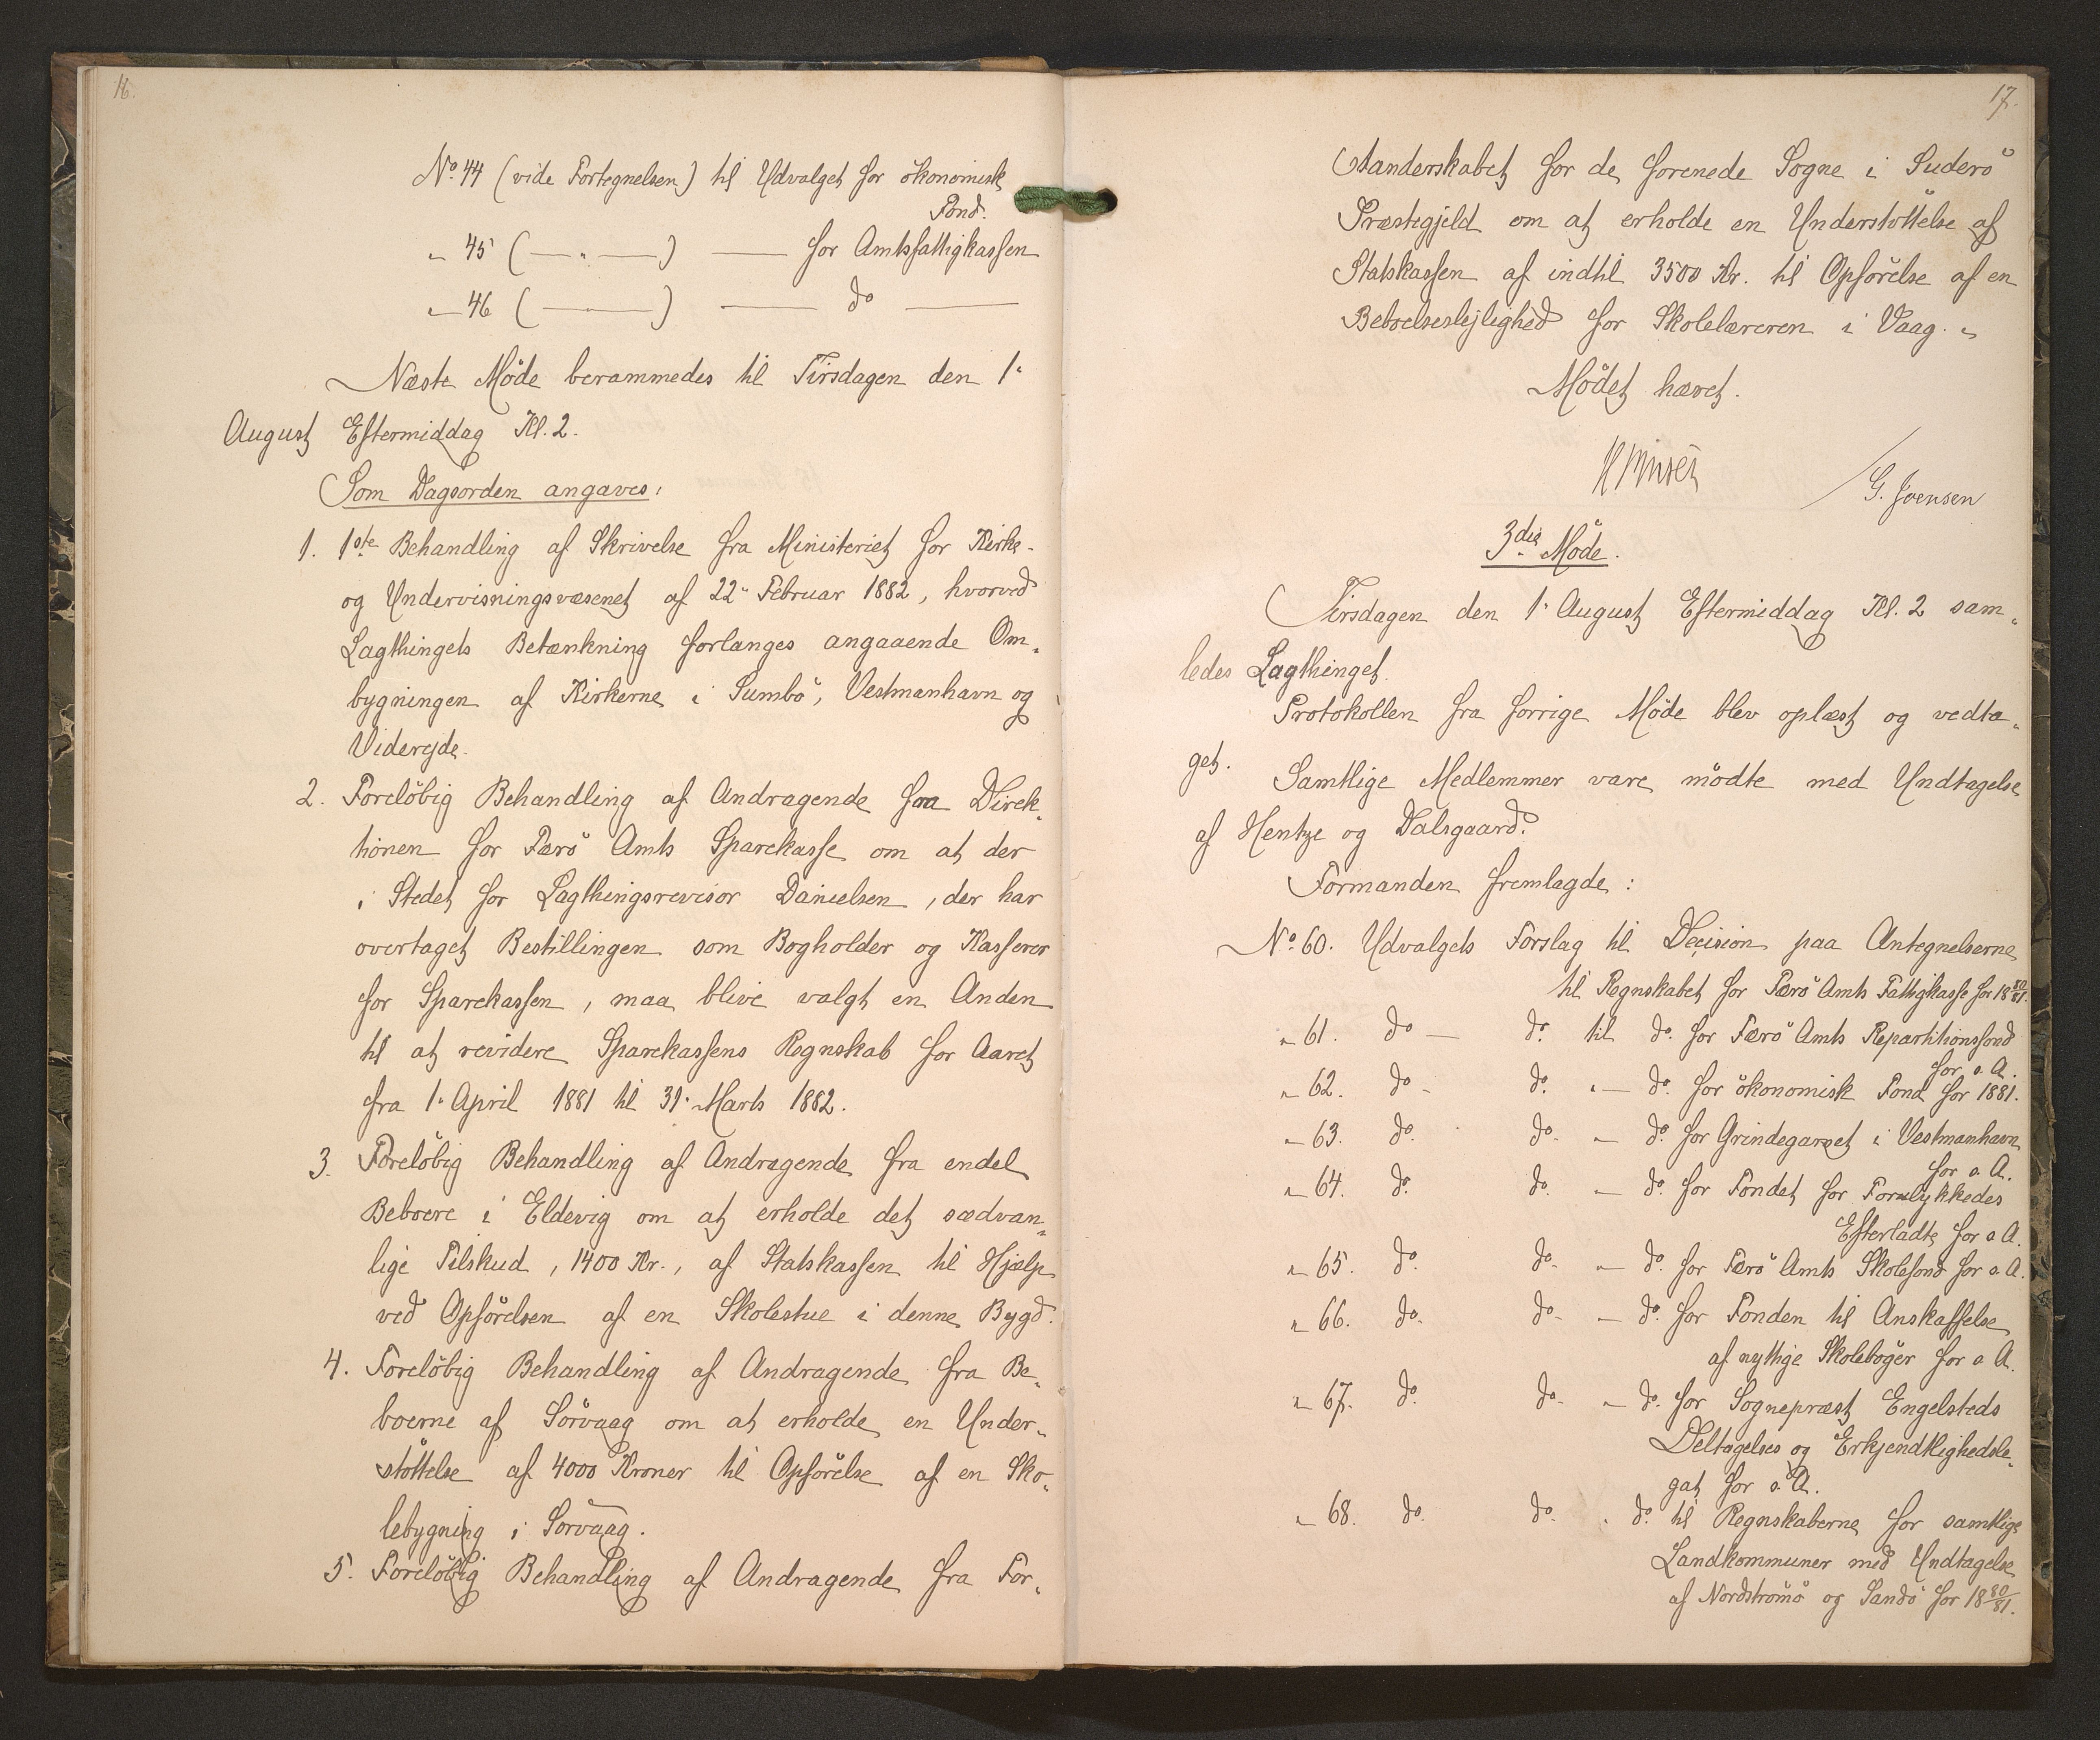 16.
No. 44 (vide Fortegnelsen) til Udvalget for økonomisk
Fond.
" 45 ( — " — ) — for Amtsfattigkassen
" 46 ( — ) — do —
Næste Møde berammedes til Tirsdagen den 1.
August Eftermiddag Kl. 2.
Som Dagsorden angaves:
1. 1ste Behandling af Skrivelse fra Ministeriet for Kirke-
og Undervisningsvæsenet af 22. Februar 1882, hvorved
Lagthingets Betænkning forlanges angaaende Om-
bygningen af Kirkerne i Sumbø, Vestmanhavn og
Viderejde.
2. Foreløbig Behandling af Andragende fra Direk-
tionen for Færø Amts Sparekasse om at der
i Stedet for Lagthingsrevisor Danielsen, der har
overtaget Bestillingen som Bogholder og Kasserer
for Sparekassen, maa blive valgt en Anden
til at revidere Sparekassens Regnskab for Aaret
fra 1. April 1881 til 31. Marts 1882.
3. Foreløbig Behandling af Andragende fra endel
Beboere i Eldevig om at erholde det sædvan-
lige Tilskud, 1400 Kr., af Statskassen til Hjælp
ved Opførelsen af en Skolestue i denne Bygd.
4. Foreløbig Behandling af Andragende fra Be-
boerne af Sørvaag om at erholde en Under-
støttelse af 4000 Kroner til Opførelse af en Sko-
lebygning i Sørvaag.
5. Foreløbig Behandling af Andragende fra For-
17.
standerskabet for de forenede Sogne i Suderø
Præstegjeld om at erholde en Understøttelse af
Statskassen af indtil 3500 Kr. til Opførelse af en
Beboelseslejlighed for Skolelæreren i Vaag. "
Mødet hævet.
G. Joensen
3die Møde.
Tirsdagen den 1. August Eftermiddag Kl. 2 sam-
ledes Lagthinget.
Protokollen fra forrige Møde blev oplæst og vedta-
get.
Samtlige Medlemmer vare mødte med Undtagelse
af Hentze og Dalsgaard.
Formanden fremlagde:
No. 60. Udvalgets Forslag til Decision paa Antegnelserne
til Regnskabet for Færø Amts Fattigkasse for 1880/81.
" 61. do — do. til do. for Færø Amts Repartitionsfond
for s. A.
" 62. do - do. " — do. for økonomisk Fond for 1881.
" 63. do. do. — do. for Grindegarnet i Vestmanhavn
for s. A.
" 64. do. do. — do. for Fondet for Forulykkedes
Efterladte for s. A.
" 65. do. do. — do. for Færø Amts Skolefond for s. A.
" 66. do. do. — do. for Fonden til Anskaffelse
af nyttige Skolebøger for s. A.
" 67. do. do. — do. for Sognepræst Engelsteds
Deltagelses og Erkjendtlighedsle-
gat for s. A.
" 68. do. do. " do. til Regnskaberne for samtlige
Landkommuner med Undtagelse
af Nordstrømø og Sandø for 1880/81.